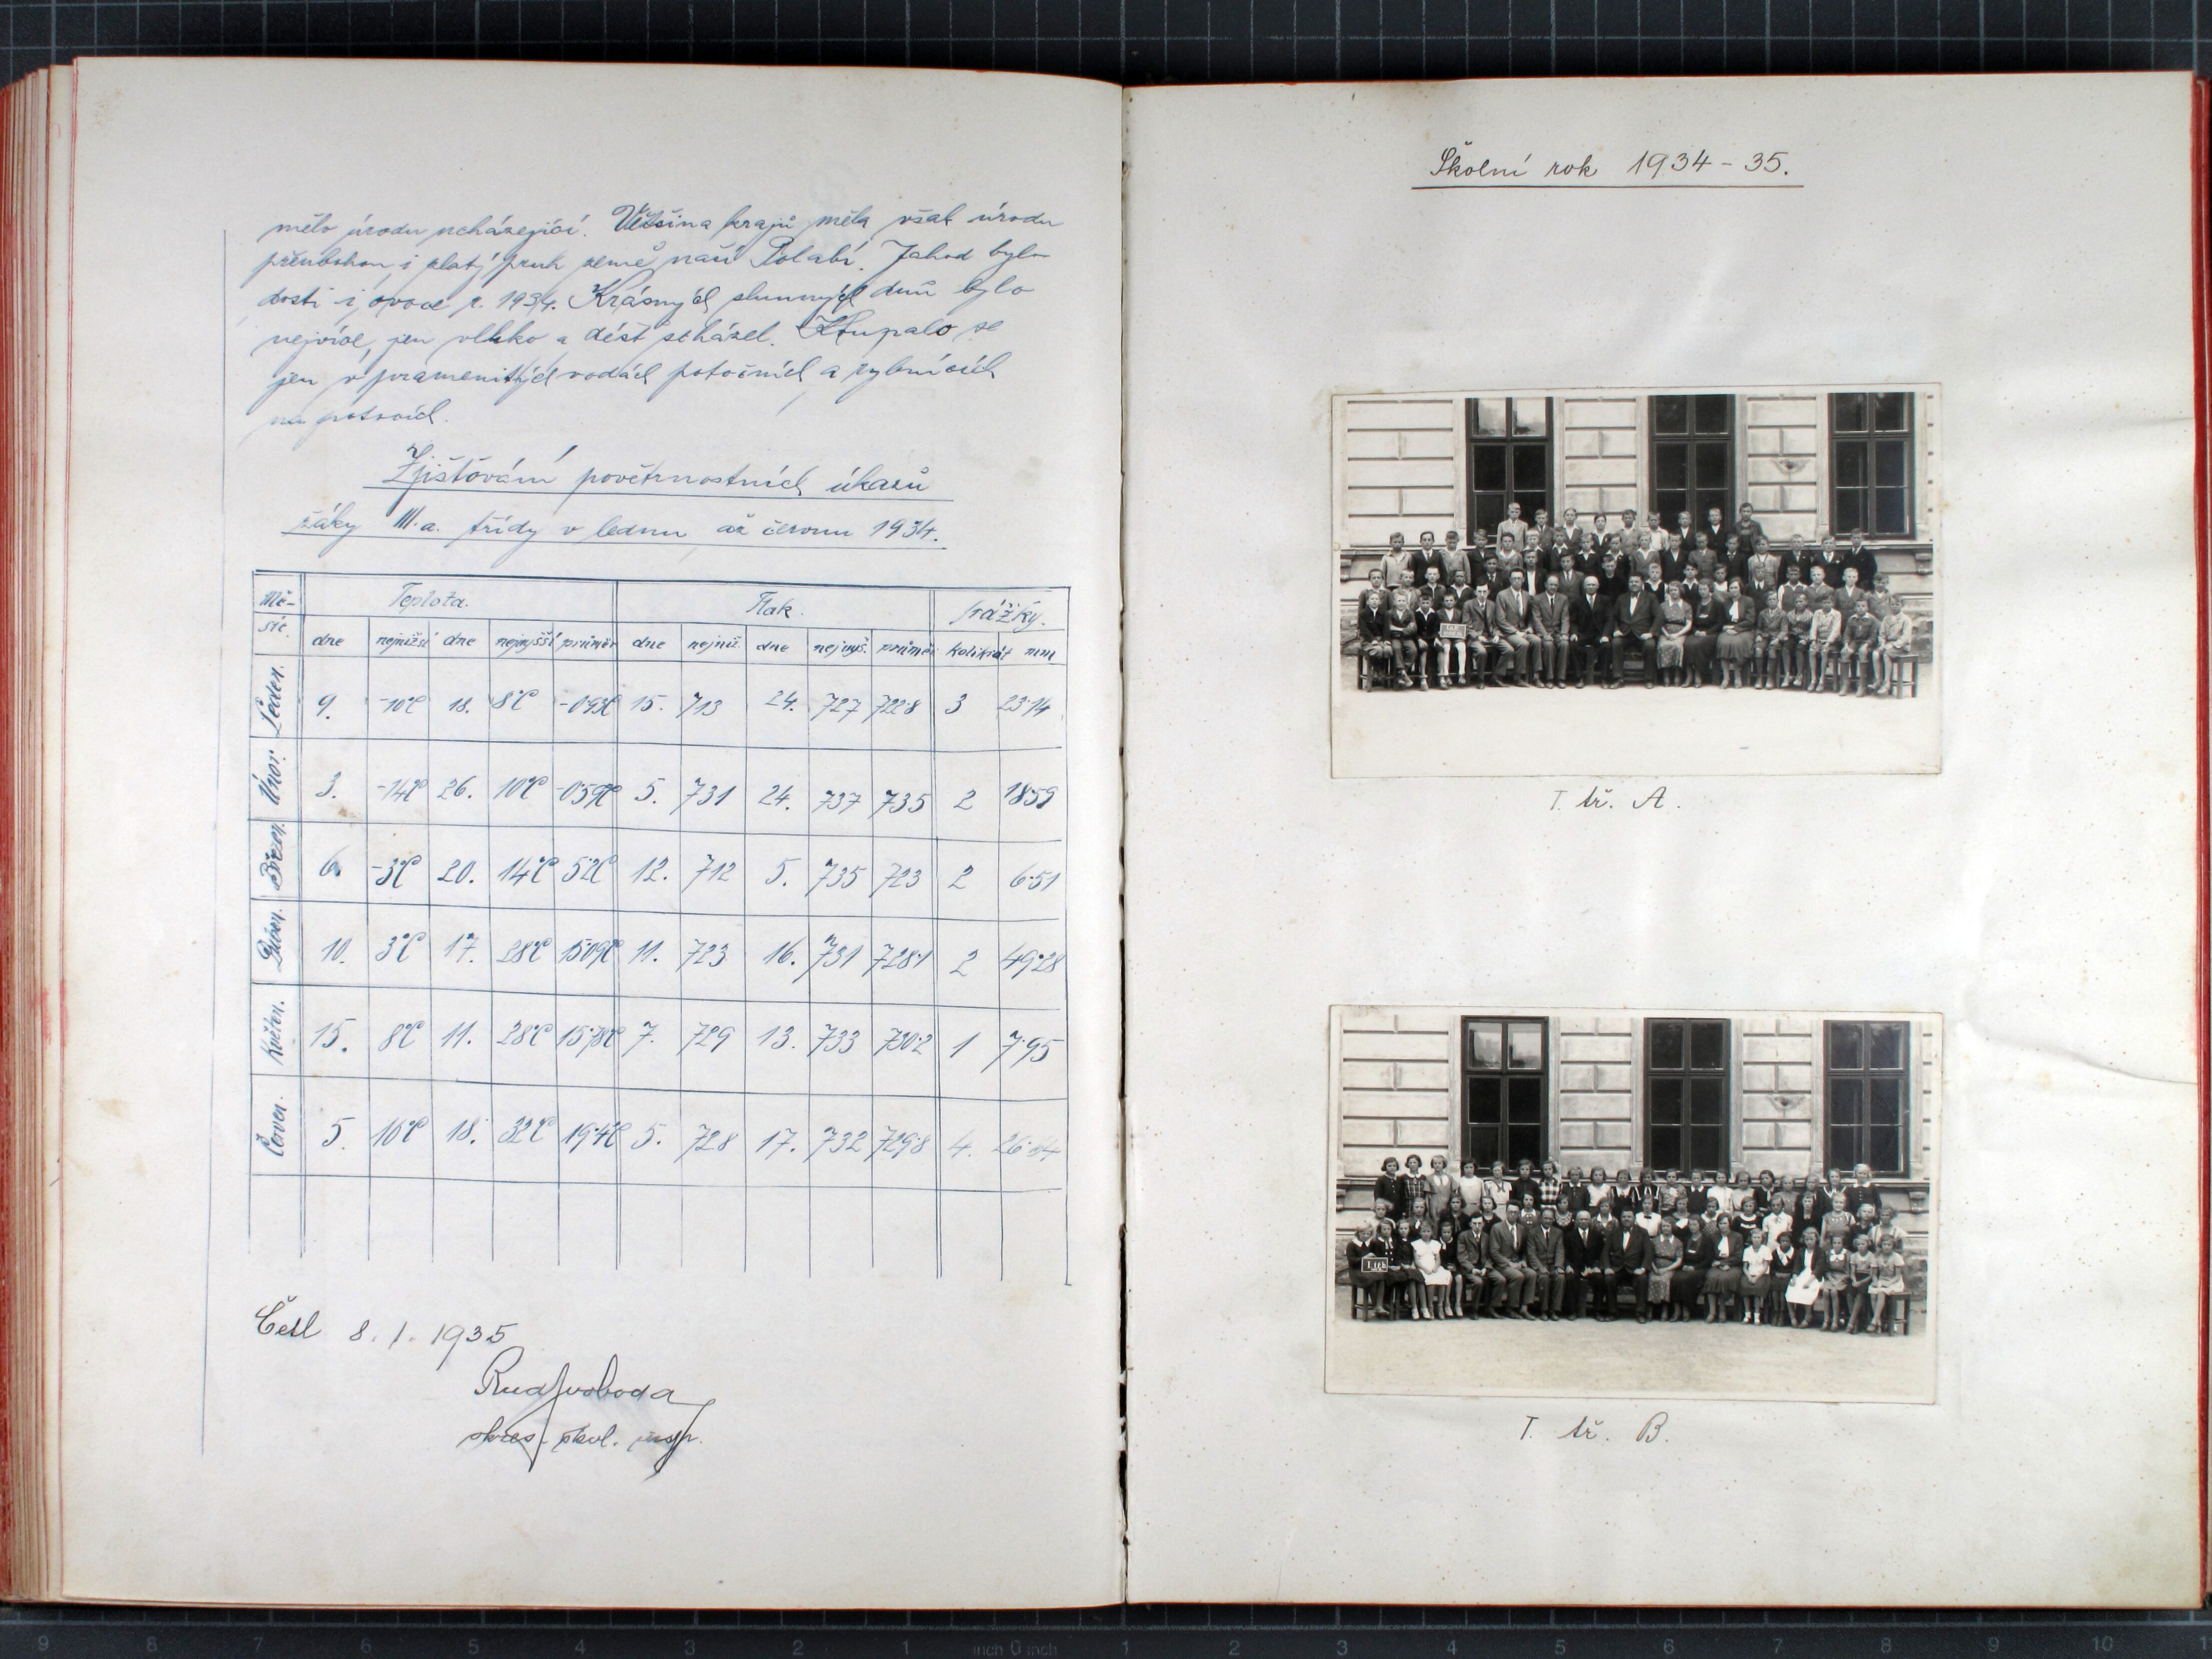 mělo úrodu ucházející. Většina krajů měla však úrodu
přeubohou i zlatý pruh země naší Polabí. Jahod bylo
dosti i ovoce r. 1934. Krásných slunných dnů bylo
nejvíce, jen vlhko a déšť scházel. Koupalo se
jen v pramenitých vodách potočních a rybnících
na potocích.
Zjišťování povětrnostních úkazů
žáky III.a. třídy v lednu až červnu 1934.
Mě- Teplota. Tlak. Srážky.
síc. dne nejnižší dne nejvyšší průměr dne nejniž. dne nejvyš. průměr kolikrát mm
Leden. 9. -10°C 18. 8°C -0.93C 15. 713 24. 727 722.8 3 23.14
Únor. 3. -14°C 26. 10°C -0.59C 5. 731 24. 737 735 2 18.59
Březen. 6. -3°C 20. 14°C 5.2C 12. 712 5. 735 723 2 6.51
Duben. 10. 3°C 17. 28°C 15.09C 11. 723 16. 731 728.1 2 49.28
Květen. 15. 8°C 11. 28°C 15.78C 7. 729 13. 733 730.2 1 7.95
Červen. 5. 10°C 18. 32°C 19.4C 5. 728 17. 732 729.8 4.
Četl 8. 1. 1935
Rud Svoboda
okres. škol. insp.
Školní rok 1934-35.
I. tř. A.
I. tř. B.
9 8 7 6 5 4 3 2 1 inch 0 inch 1 2 3 4 5 6 7 8 9 10